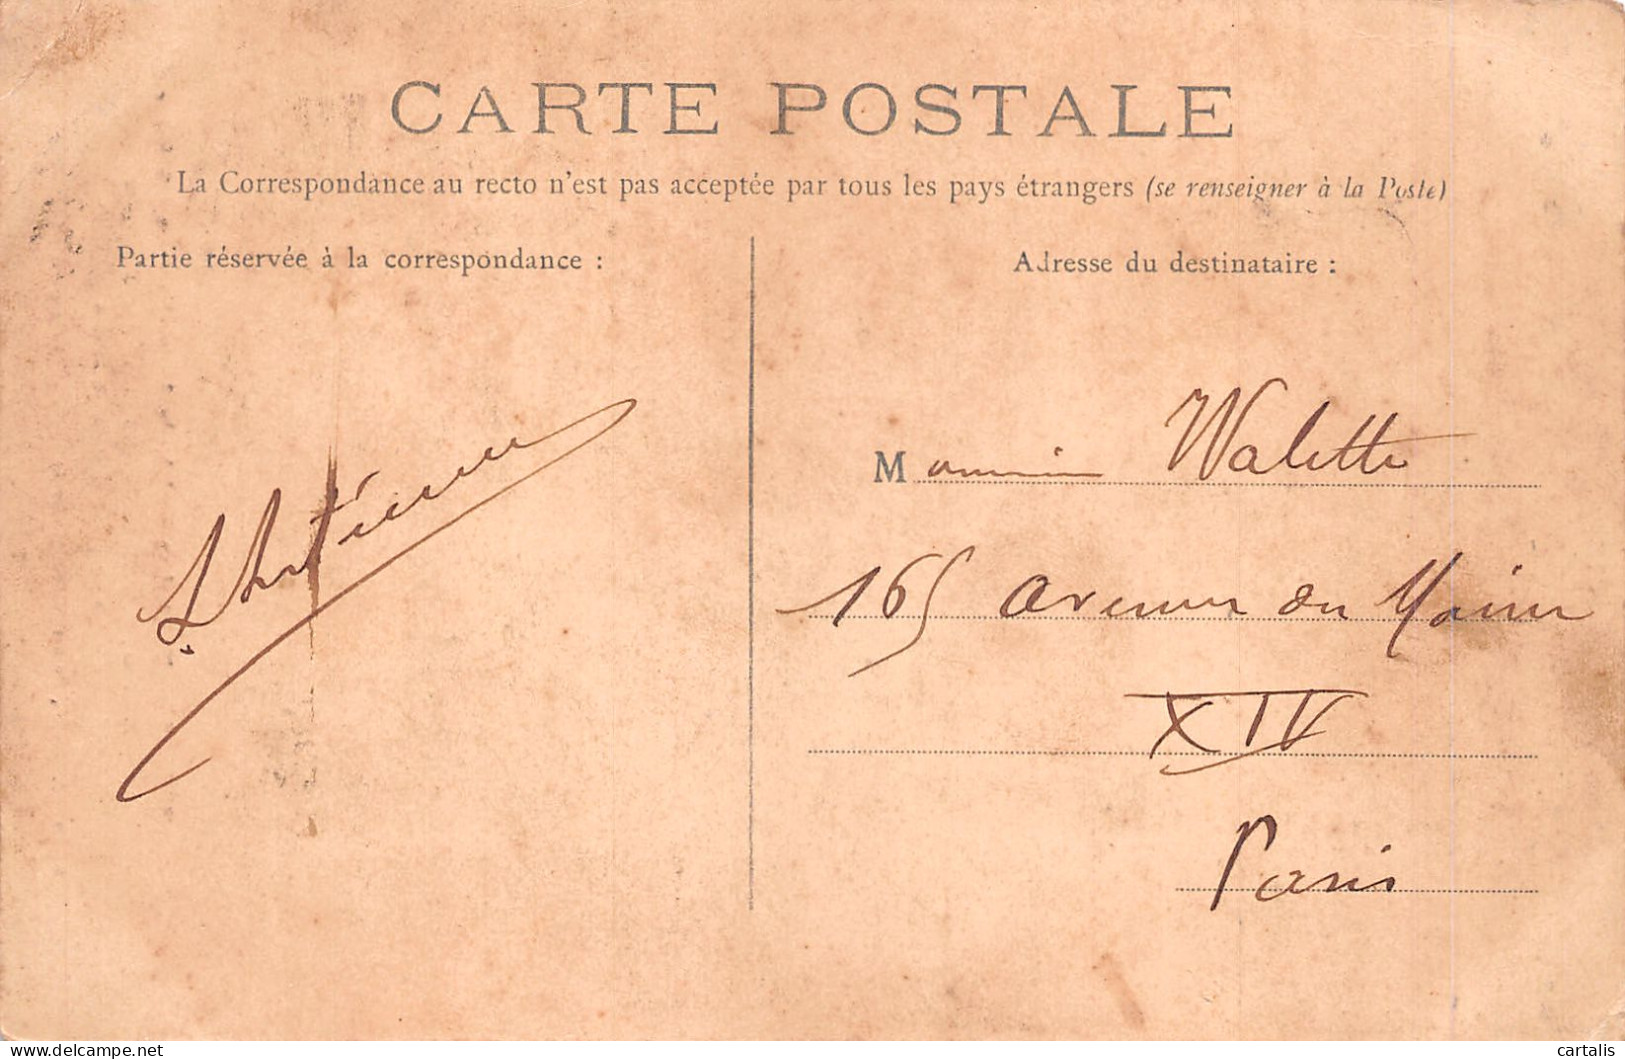 CARTE POSTALE
La Correspondance au recto n'est pas acceptée par tous les pays étrangers (se renseigner à la Poste)
Partie réservée à la correspondance :
Adresse du destinataire :
M Walette
165 Avenue du Maine
XIV
Paris
delcampe.net
cartalis